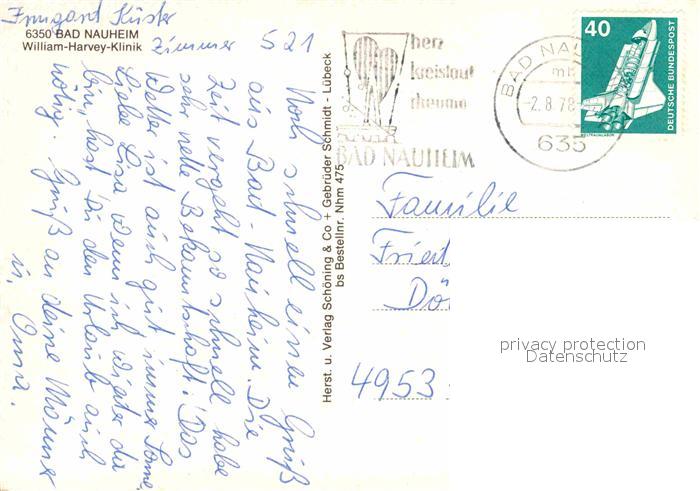 Irmgard Küster
6350 BAD NAUHEIM
William-Harvey-Klinik
Zimmer 521
Noch schnell einen Gruß
aus Bad-Nauheim. Die
Zeit vergeht so schnell habe
sehr nette Bekanntschaft! Das
Wetter ist auch gut immer Sonne
Liebe Lisa wenn ich wieder da
bin, hast Du den Urlaub auch
nötig. Gruß an deine Männer
u. Oma.
Herst. u. Verlag Schöning & Co + Gebrüder Schmidt - Lübeck
bs Bestellnr. Nhm 475
herz
kreislauf
rheuma
BAD NAUHEIM
BAD NAU
mb
-2.8.78
635
40
DEUTSCHE BUNDESPOST
WELTRAUMLABOR
Familie
Fried
Dö
4953
privacy protection
Datenschutz